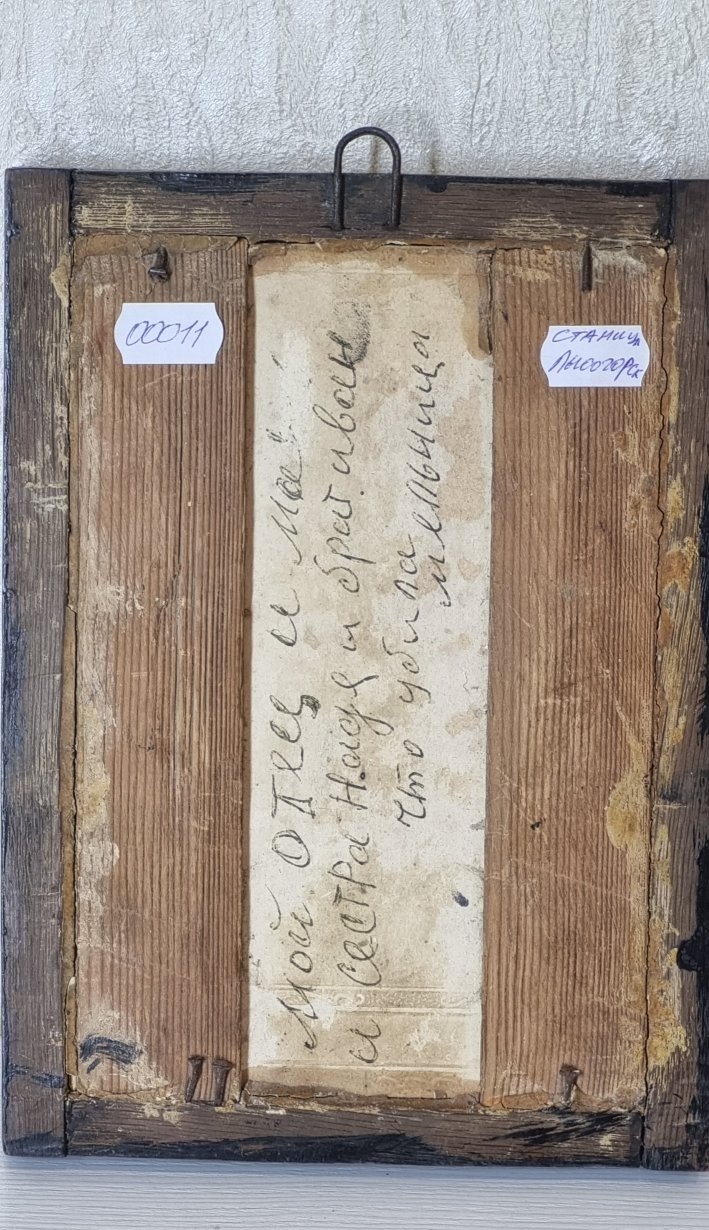 00011
СТАНИЦА
Лысогорск
Мой отец и мое
и сестра Надя и брат иван
что убила
мельница